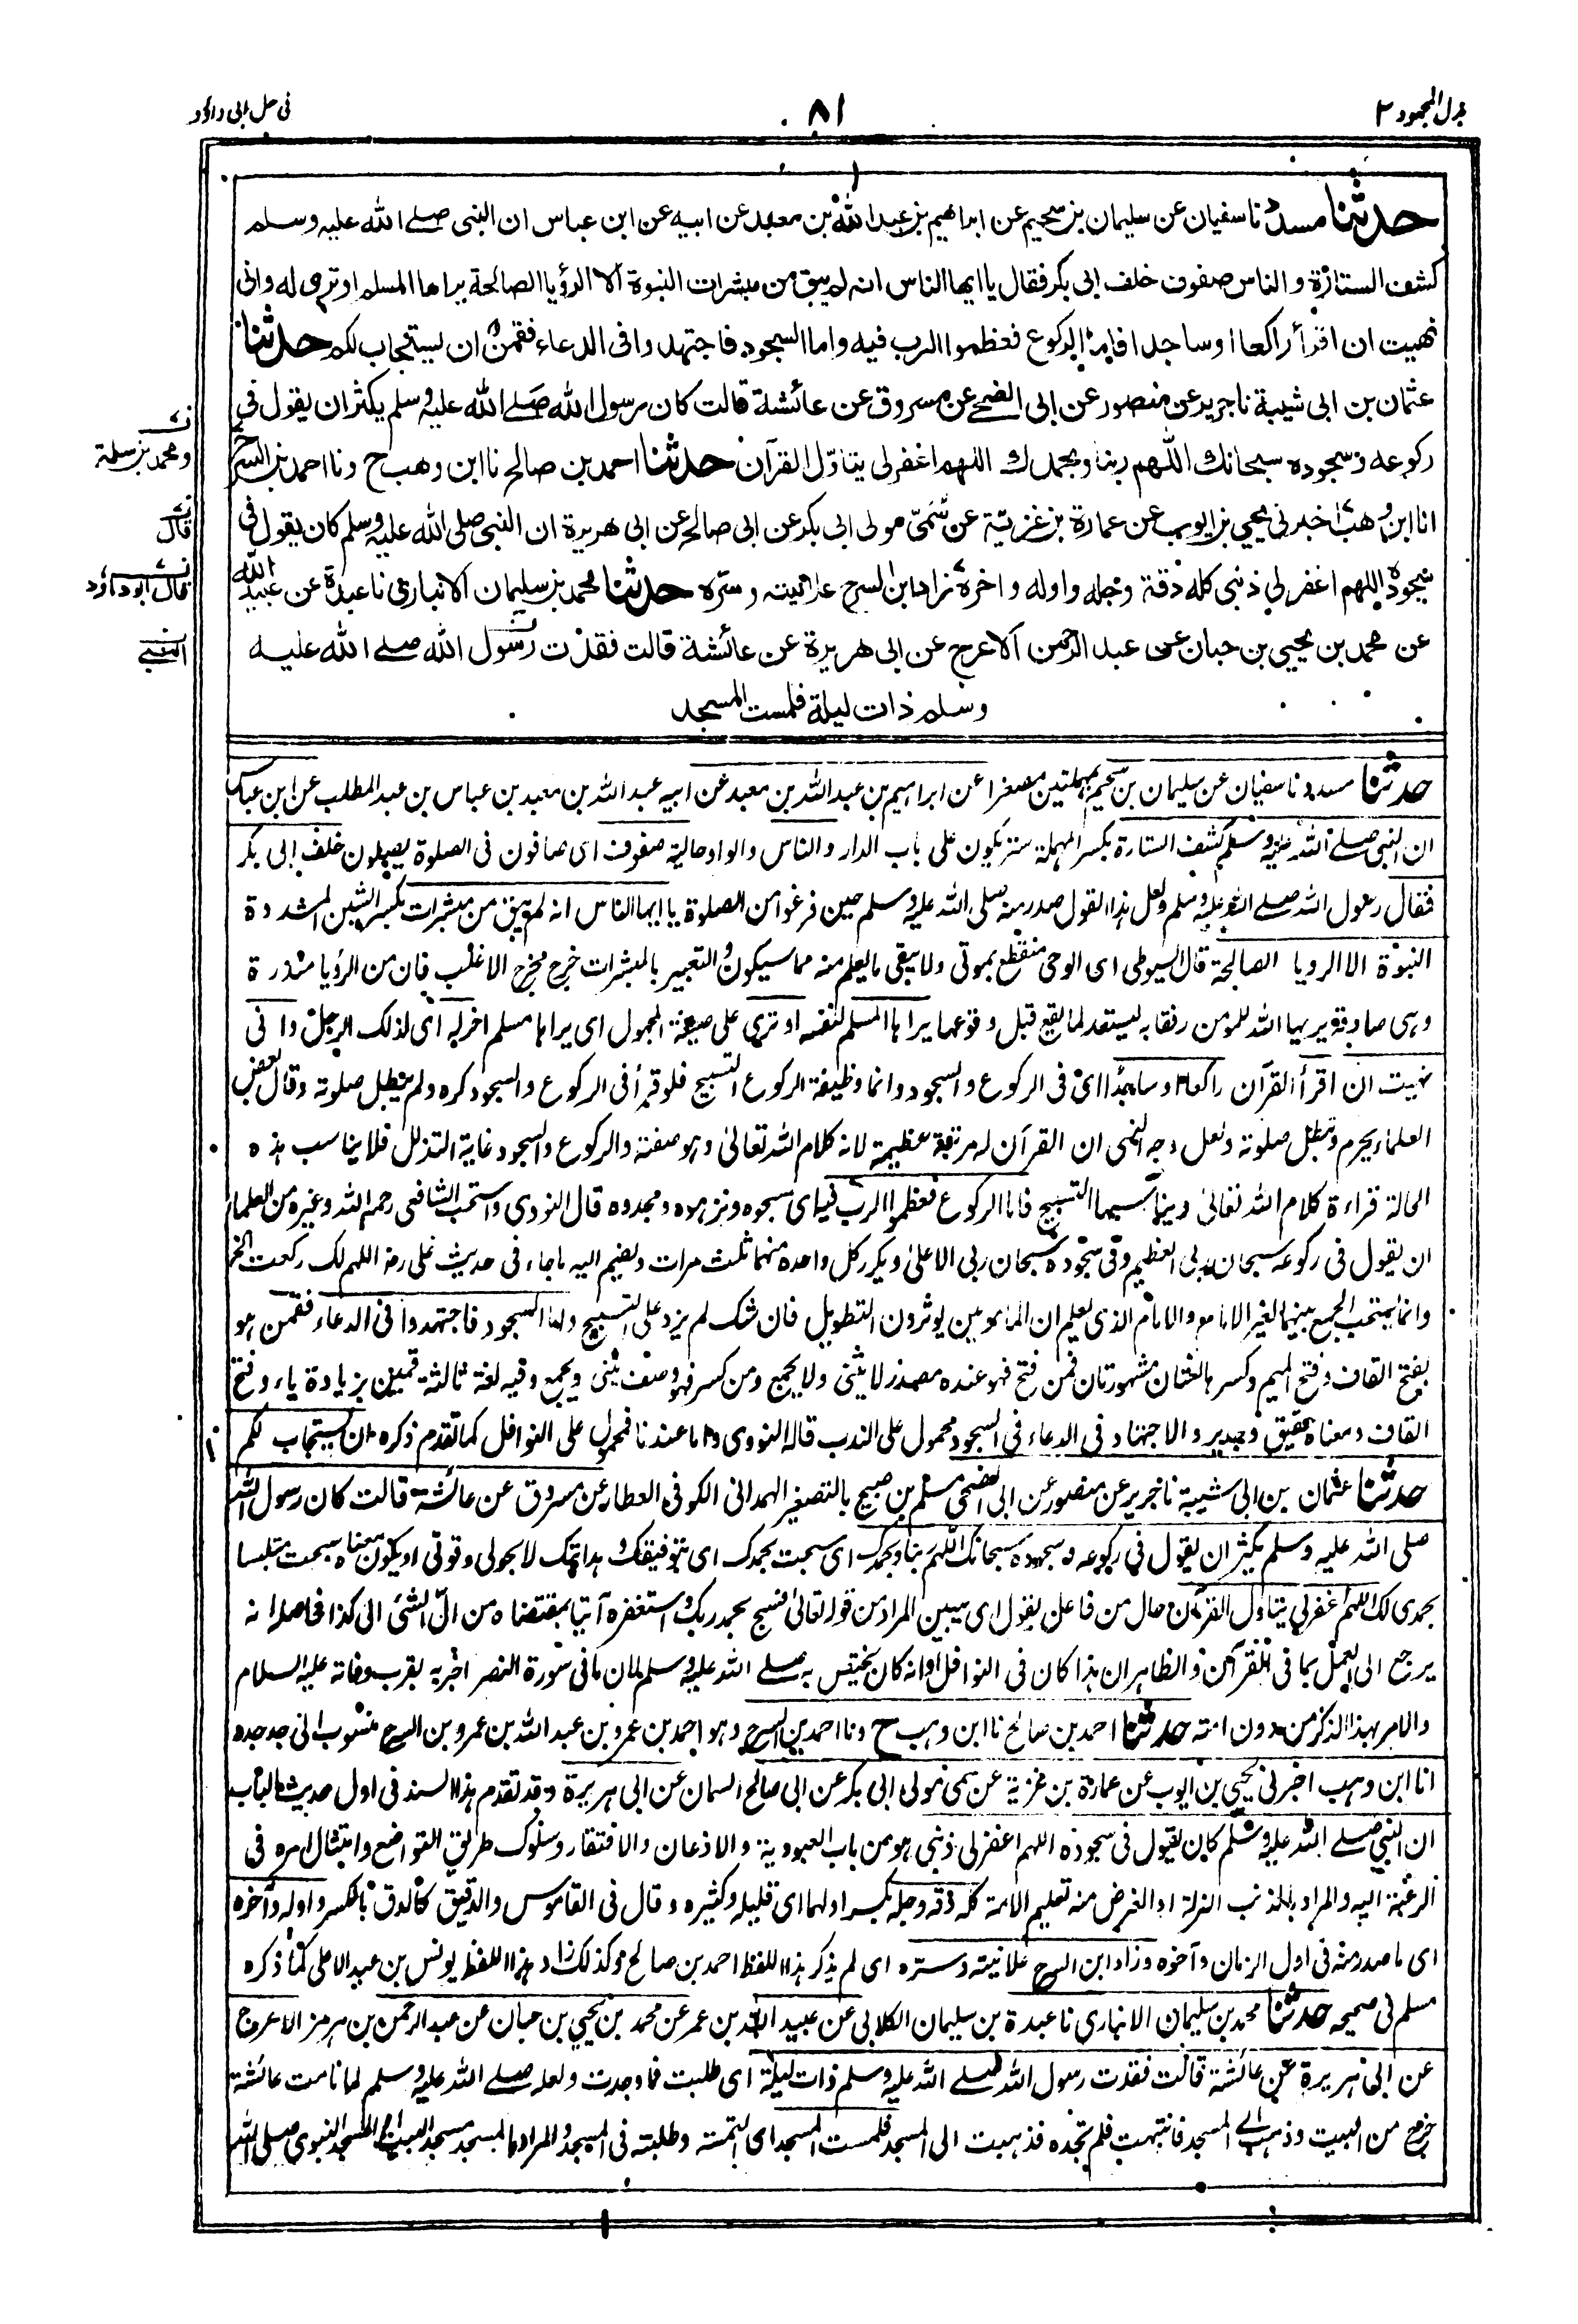 بذل المجهود ٢
٨١
فى حل ابى داؤد
حدثنا مسدد نا سفيان عن سليمان بن سحيم عن ابراهيم بن عبد الله بن معبد عن ابيه عن ابن عباس ان النبى صلے الله عليه وسلم
كشف الستارة والناس صفوف خلف ابى بكر فقال يا ايها الناس انه لم يبق من مبشرات النبوة الا الرؤيا الصالحة يراها المسلم او ترى له وانى
نهيت ان اقرأ راكعا او ساجدا فاما الركوع فعظموا الرب فيه واما السجود فاجتهدوا فى الدعاء فقمن ان يستجاب لكم حدثنا
عثمان بن ابى شيبة نا جرير عن منصور عن ابى الضحى عن مسروق عن عائشة قالت كان رسول الله صلے الله عليه وسلم يكثر ان يقول فى
ركوعه وسجوده سبحانك اللهم ربنا وبحمدك اللهم اغفر لى يتاول القرآن حدثنا احمد بن صالح نا ابن وهب ح ونا احمد بن السرح
انا ابن وهب اخبرنى يحيى بن ايوب عن عمارة بن غزية عن سمى مولى ابى بكر عن ابى صالح عن ابى هريرة ان النبى صلى الله عليه وسلم كان يقول فى
سجوده اللهم اغفر لي ذنبى كله دقه وجله واوله واخره زاد ابن السرح علانيته وسره حدثنا محمد بن سليمان الانبارى نا عبدة عن عبيد الله
عن محمد بن يحيى بن حبان عن عبد الرحمن الاعرج عن ابى هريرة عن عائشة قالت فقدت رسول الله صلے الله عليه
وسلم ذات ليلة فلمست المسجد
ومحمد بن سلمة
قال
قال ابو داؤد
النبى
حدثنا مسدد نا سفيان عن سليمان بن سحيم بمهملتين مصغرا عن ابراهيم بن عبد الله بن معبد عن ابيه عبد الله بن معبد بن عباس بن عبد المطلب عن ابن عباس
ان النبى صلے الله عليه وسلم كشف الستارة بكسر المهملة ستر يكون على باب الدار والناس والواو حالية صفوف اى صافون فى الصلوة يصلون خلف ابى بكر
فقال رسول الله صلے الله عليه وسلم ولعل هذا القول صدر منه صلى الله عليه وسلم حين فرغوا من الصلوة يا ايها الناس انه لم يبق من مبشرات بكسر الشين المشددة
النبوة الا الرويا الصالحة قال السيوطى اى الوحى منقطع بموتى ولا يبقى ما يعلم منه مما سيكون والتعبير بالمبشرات خرج مخرج الاغلب فان من الرؤيا منذرة
وهى صادقة يريها الله للمومن رفقا به ليستعد لما يقع قبل وقوعها يراها المسلم لنفسه او ترى على صيغة المجهول اى يراها مسلم اخر له اى لذلك الرجل وانى
نهيت ان اقرأ القرآن راكعا او ساجدا اى فى الركوع والسجود وانما وظيفة الركوع التسبيح فلو قرأ فى الركوع والسجود كره ولم يبطل صلوته وقال بعض
العلماء يحرم وتبطل صلوته ولعل وجه النهى ان القرآن له مرتبة عظيمة لانه كلام الله تعالى وهو صفته والركوع والسجود غاية التذلل فلا يناسب هذه
الحالة قراءة كلام الله تعالى ويناسبها التسبيح فاما الركوع فعظموا الرب فيه اى سبحوه ونزهوه ومجدوه قال النووى واستحب الشافعى رحمه الله وغيره من العلماء
ان يقول فى ركوعه سبحان ربى العظيم وفى سجوده سبحان ربى الاعلى ويكرر كل واحدة منهما ثلث مرات ويضم اليه ما جاء فى حديث على رضه اللهم لك ركعت الخ
وانما يستحب الجمع بينهما لغير الامام والامام الذى يعلم ان المأمومين يوثرون التطويل فان شك لم يزد على التسبيح واما السجود فاجتهدوا فى الدعاء فقمن هو
بفتح القاف وفتح الميم وكسرها لغتان مشهورتان فمن فتح فهو عنده مصدر لا يثنى ولا يجمع ومن كسر فهو وصف يثنى ويجمع وفيه لغة ثالثة قمين بزيادة ياء وفتح
القاف ومعناه حقيق وجدير والاجتهاد فى الدعاء فى السجود محمول على الندب قاله النووى واما عندنا فمحمول على النوافل كما تقدم ذكره ان يستجاب لكم
حدثنا عثمان بن ابى شيبة نا جرير عن منصور عن ابى الضحى مسلم بن صبيح بالتصغير الهمدانى الكوفى العطار عن مسروق عن عائشة قالت كان رسول الله
صلى الله عليه وسلم يكثر ان يقول فى ركوعه وسجوده سبحانك اللهم ربنا وبحمدك اى سبحت بحمدك اى بتوفيقك وهدايتك لا بحولى وقوتى او يكون معناه سبحت متلبسا
بحمدى لك اللهم اغفر لى يتاول القرآن حال من فاعل يقول اى يبين المراد من قوله تعالى فسبح بحمد ربك واستغفره آتيا بمقتضاه من آل الشئ الى كذا فحاصله انه
يرجع الى العمل بما فى القرآن والظاهر ان هذا كان فى النوافل او انه كان يختص به صلے الله عليه وسلم لان ما فى سورة النصر اخبر به بقرب وفاته عليه السلام
والامر بهذا الذكر من دون امته حدثنا احمد بن صالح نا ابن وهب ح ونا احمد بن السرح وهو احمد بن عمرو بن عبد الله بن عمرو بن السرح منسوب الى جد جده
انا ابن وهب اخبرنى يحيى بن ايوب عن عمارة بن غزية عن سمى مولى ابى بكر عن ابى صالح السمان عن ابى هريرة وقد تقدم هذا السند فى اول حديث الباب
ان النبى صلے الله عليه وسلم كان يقول فى سجوده اللهم اغفر لى ذنبى هو من باب العبودية والاذعان والافتقار وسلوك طريق التواضع وامتثال امره فى
الرغبة اليه والمراد بالذنب الزلة او الغرض منه تعليم الامة كله دقه وجله بكسر اولهما اى قليله وكثيره وقال فى القاموس والدقيق كالدق بالكسر واوله وآخره
اى ما صدر منه فى اول الزمان وآخره وزاد ابن السرح علانيته وسره اى لم يذكر هذا اللفظ احمد بن صالح وكذلك زاد هذا اللفظ يونس بن عبد الاعلى كما ذكره
مسلم فى صحيحه حدثنا محمد بن سليمان الانبارى نا عبدة بن سليمان الكلابى عن عبيد الله بن عمر عن محمد بن يحيى بن حبان عن عبد الرحمن بن هرمز الاعرج
عن ابى هريرة عن عائشة قالت فقدت رسول الله صلے الله عليه وسلم ذات ليلة اى طلبت فما وجدت ولعله صلے الله عليه وسلم لما نامت عائشة
خرج من البيت وذهب الى المسجد فانتبهت فلم تجده فذهبت الى المسجد فلمست المسجد اى التمسته وطلبته فى المسجد والمراد بالمسجد مسجد البيت او المسجد النبوى صلى الله